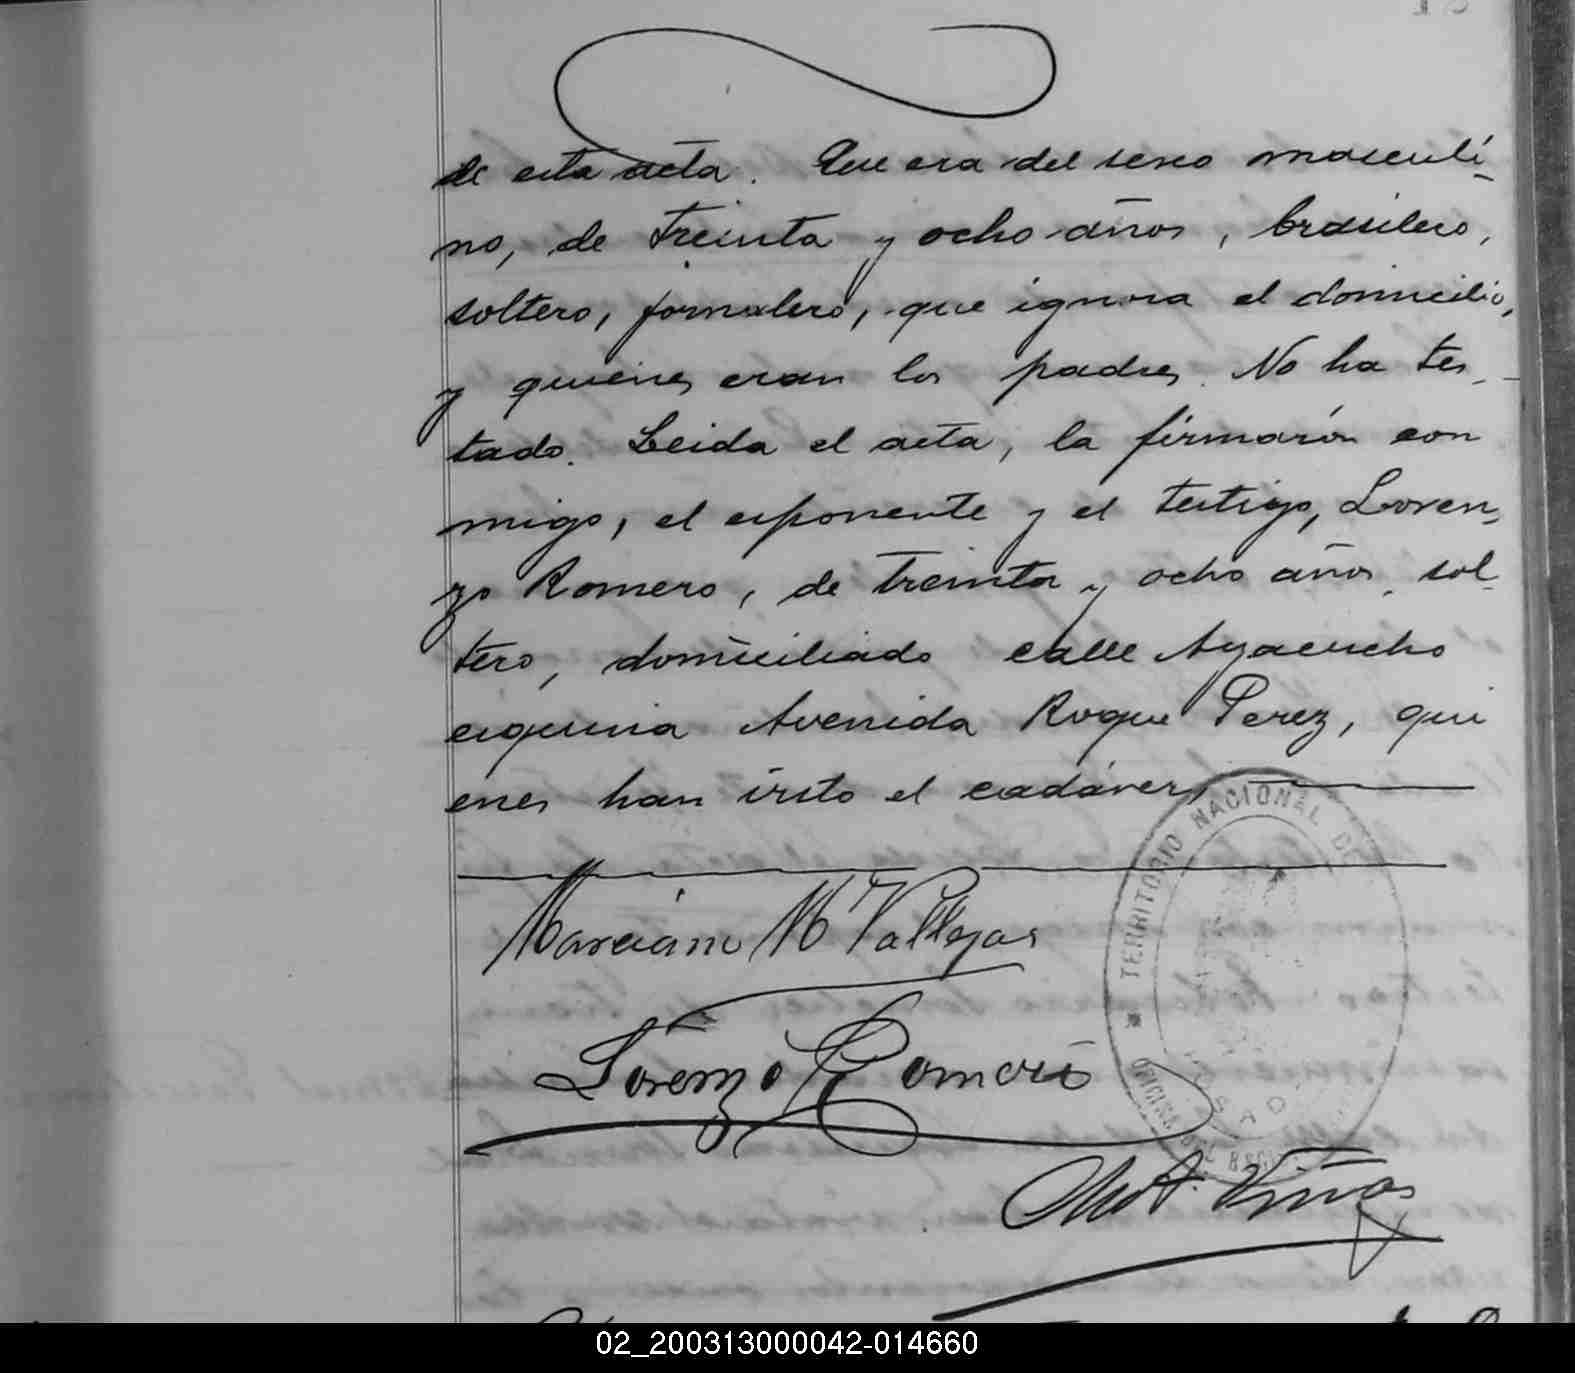 de esta acta. Que era del sexo masculi
no, de treinta y ocho años, brasilero,
soltero, jornalero, que ignora el domicilio,
y quienes eran los padres. No ha tes-
tado. Leida el acta, la firmarón con
migo, el exponente y el testigo, Loren
zo Romero, de treinta y ocho años, sol
tero, domiciliado calle Ayacucho
esquina Avenida Roque Perez, qui
enes han visto el cadáver,
TERRITORIO NACIONAL DE
Marciano Mº Vallejos
Lorenzo Romero
OFICINA DEL
POSADAS
Viñas
02_200313000042-014660